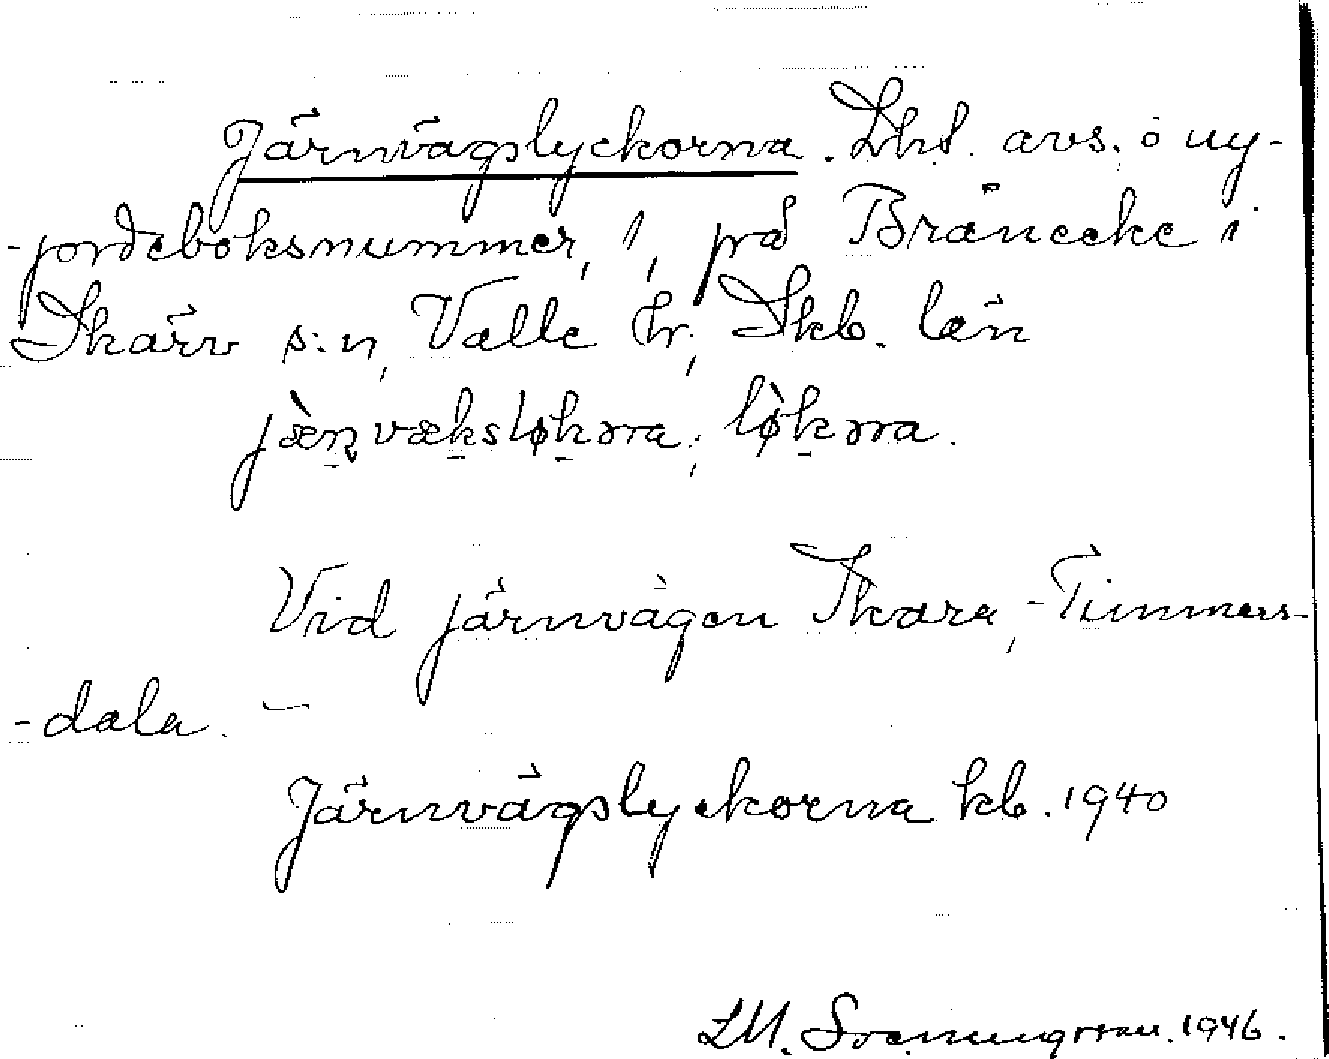 Järnvägslyckorna. Lht. avs. o ny-
-jordeboksnummer, 1, på Bränecke i
Skärv s:n, Valle hr; Skb. län
jæ̀ɳvæksløkɔrna; lø̀kɔrna.
Vid järnvägen Skara,-Timmers-
-dala. –
Järnvägslyckorna kb. 1940
LM. Svenungsson. 1946.